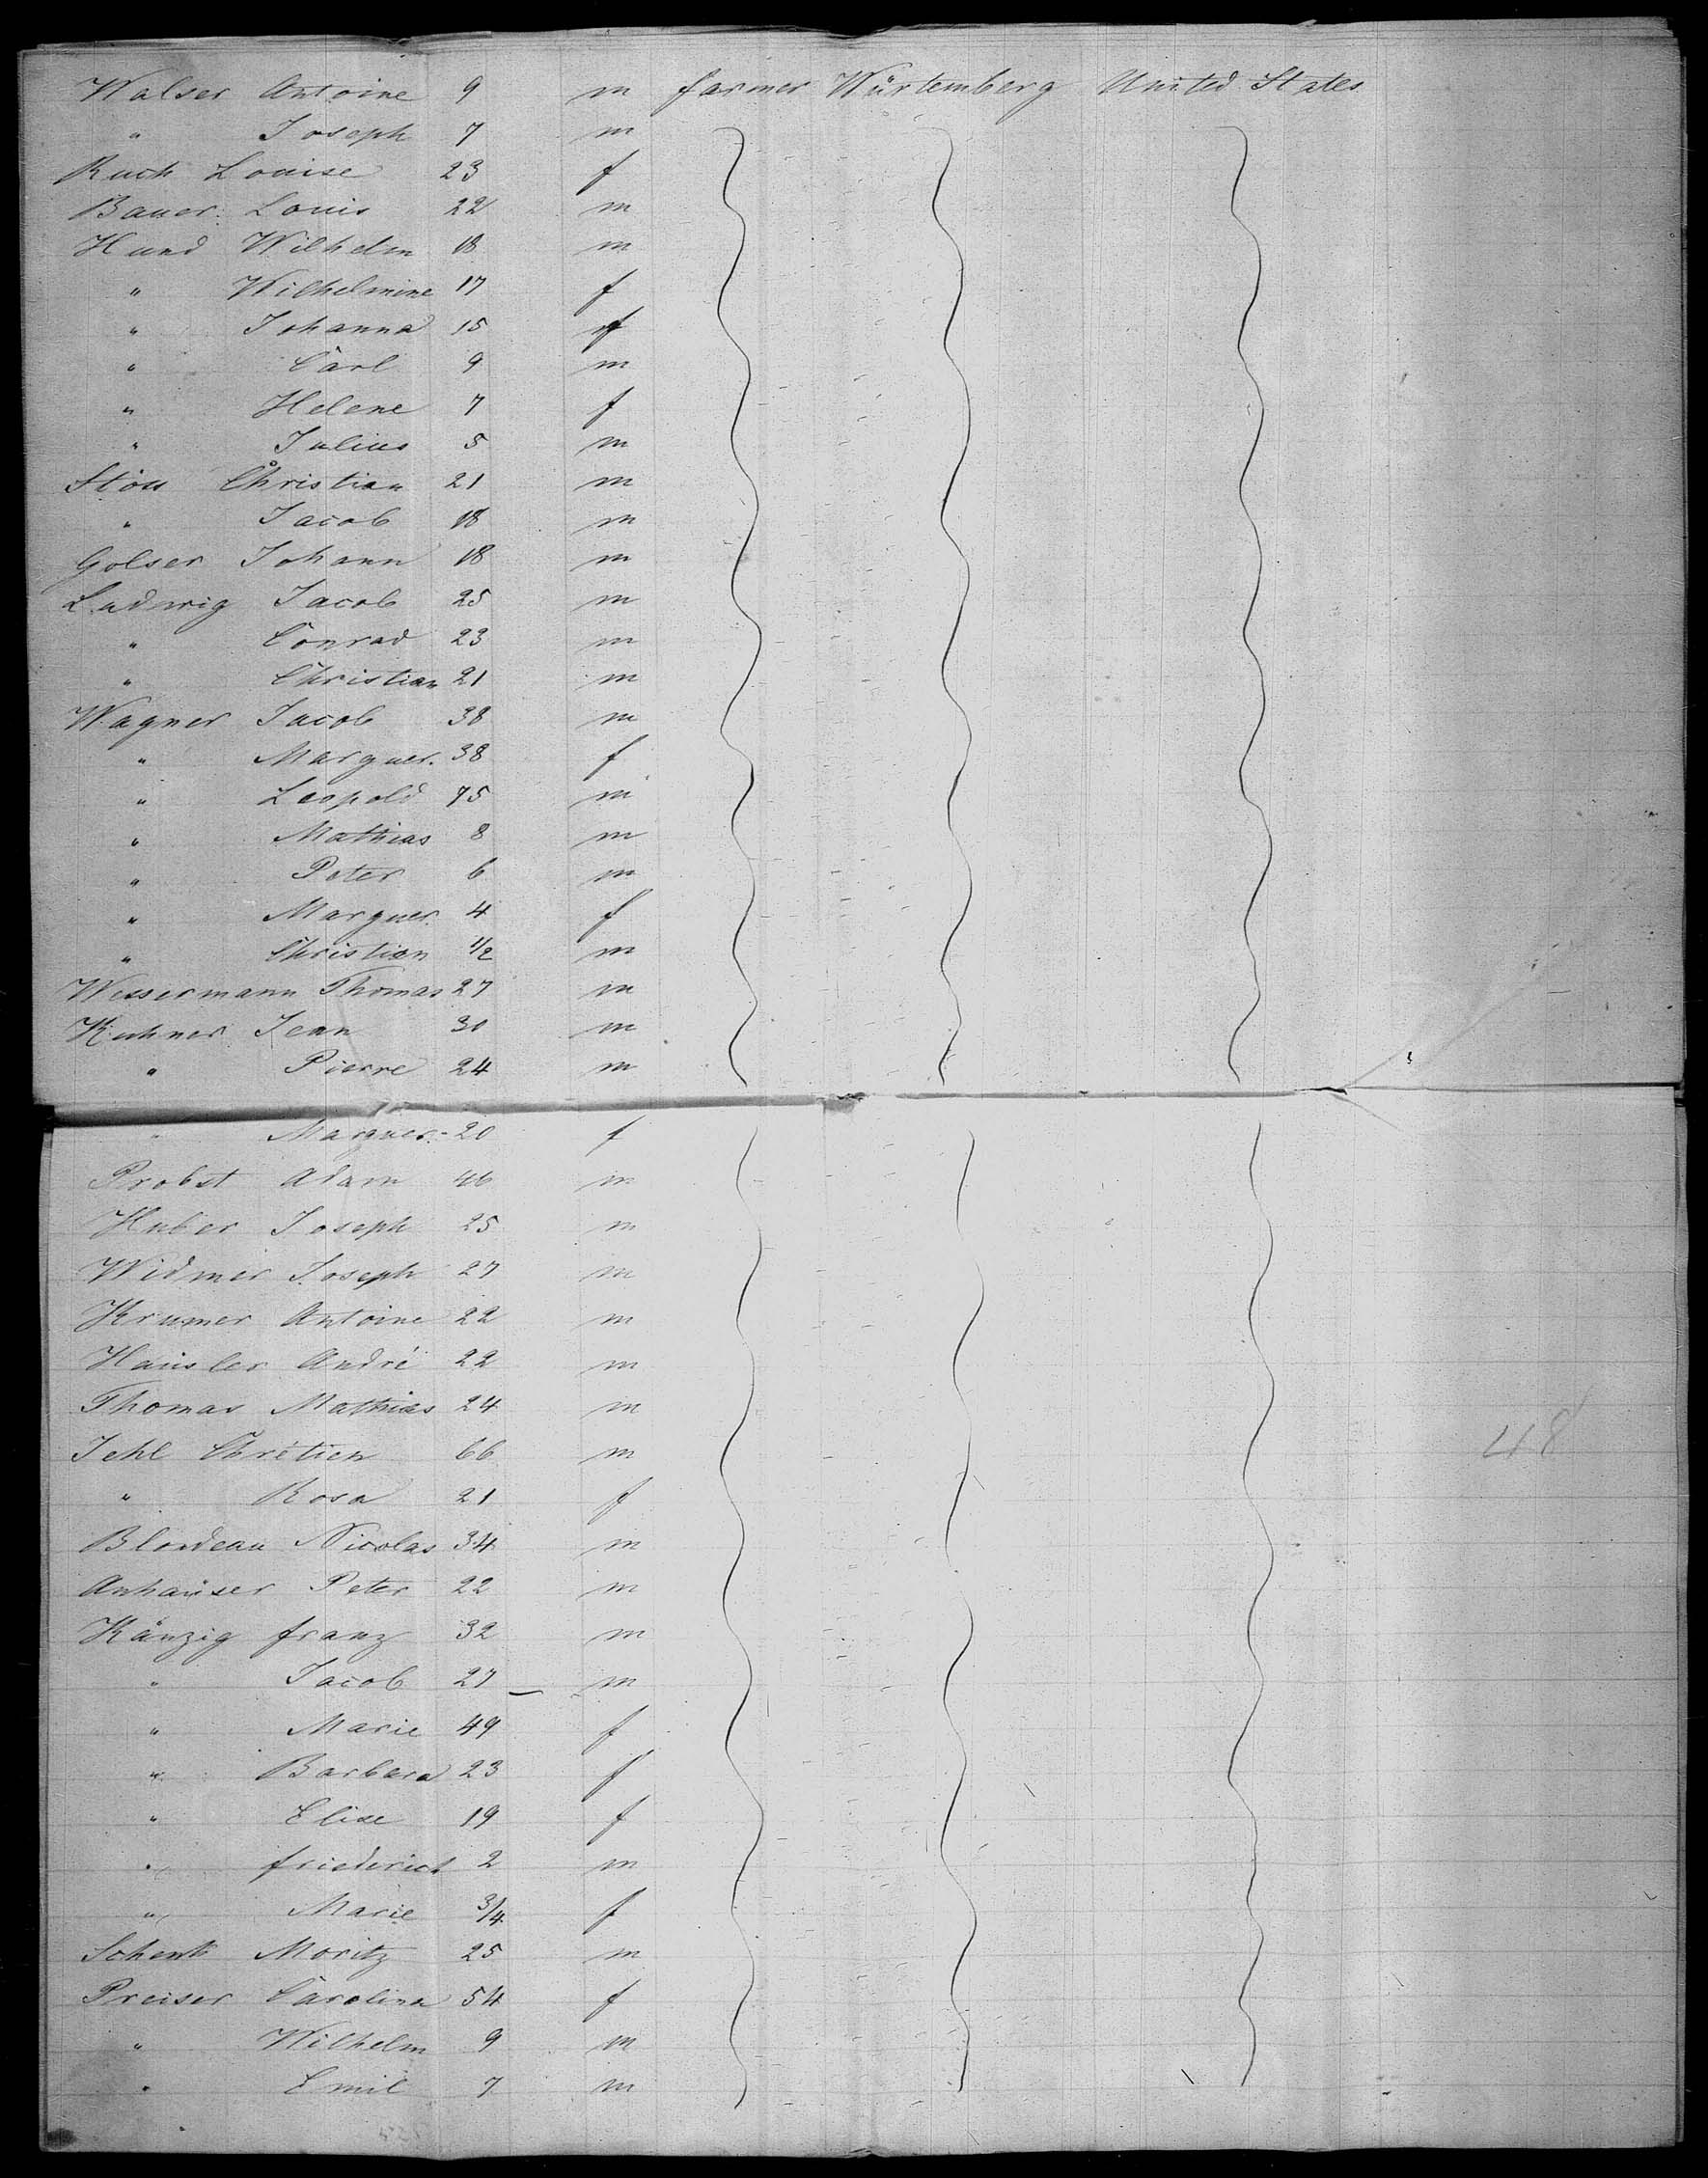 Walser Antoine 9 m farmer Würtemberg United States
" Joseph 7 m
Ruch Louise 23 f
Bauer Louis 22 m
Hund Wilhelm 18 m
" Wilhelmine 17 f
" Johanna 15 f
" Carl 9 m
" Helene 7 f
" Julius 5 m
Christian 21 m
" Jacob 18 m
Golser Johann 18 m
Ludwig Jacob 25 m
" Conrad 23 m
" Christian 21 m
Wagner Jacob 38 m
" Marguer. 38 f
" Leopold m
" Mathias 8 m
" Peter 6 m
" Marguer. 4 f
" Christian 1/2 m
Wessermann Thomas 27 m
Kuhner Jean 30 m
" Pierre 24 m
" Marguer. 20 f
Probst Adam 46 m
Huber Joseph 25 m
Widmer Joseph 27 m
Krumer Antoine 22 m
Haüsler André 22 m
Thomas Mathias 24 m
Jehl Chrétien 66 m
" Rosa 21 f
Blondeau Nicolas 34 m
Anhaüser Peter 22 m
Känzig franz 32 m
" Jacob 27 m
" Marie 49 f
" Barbara 23 f
" Elise 19 f
" friederich 2 m
" Marie 3/4 f
Schenk Moritz 25 m
Preiser Carolina 54 f
" Wilhelm 9 m
" Emil 7 m
48